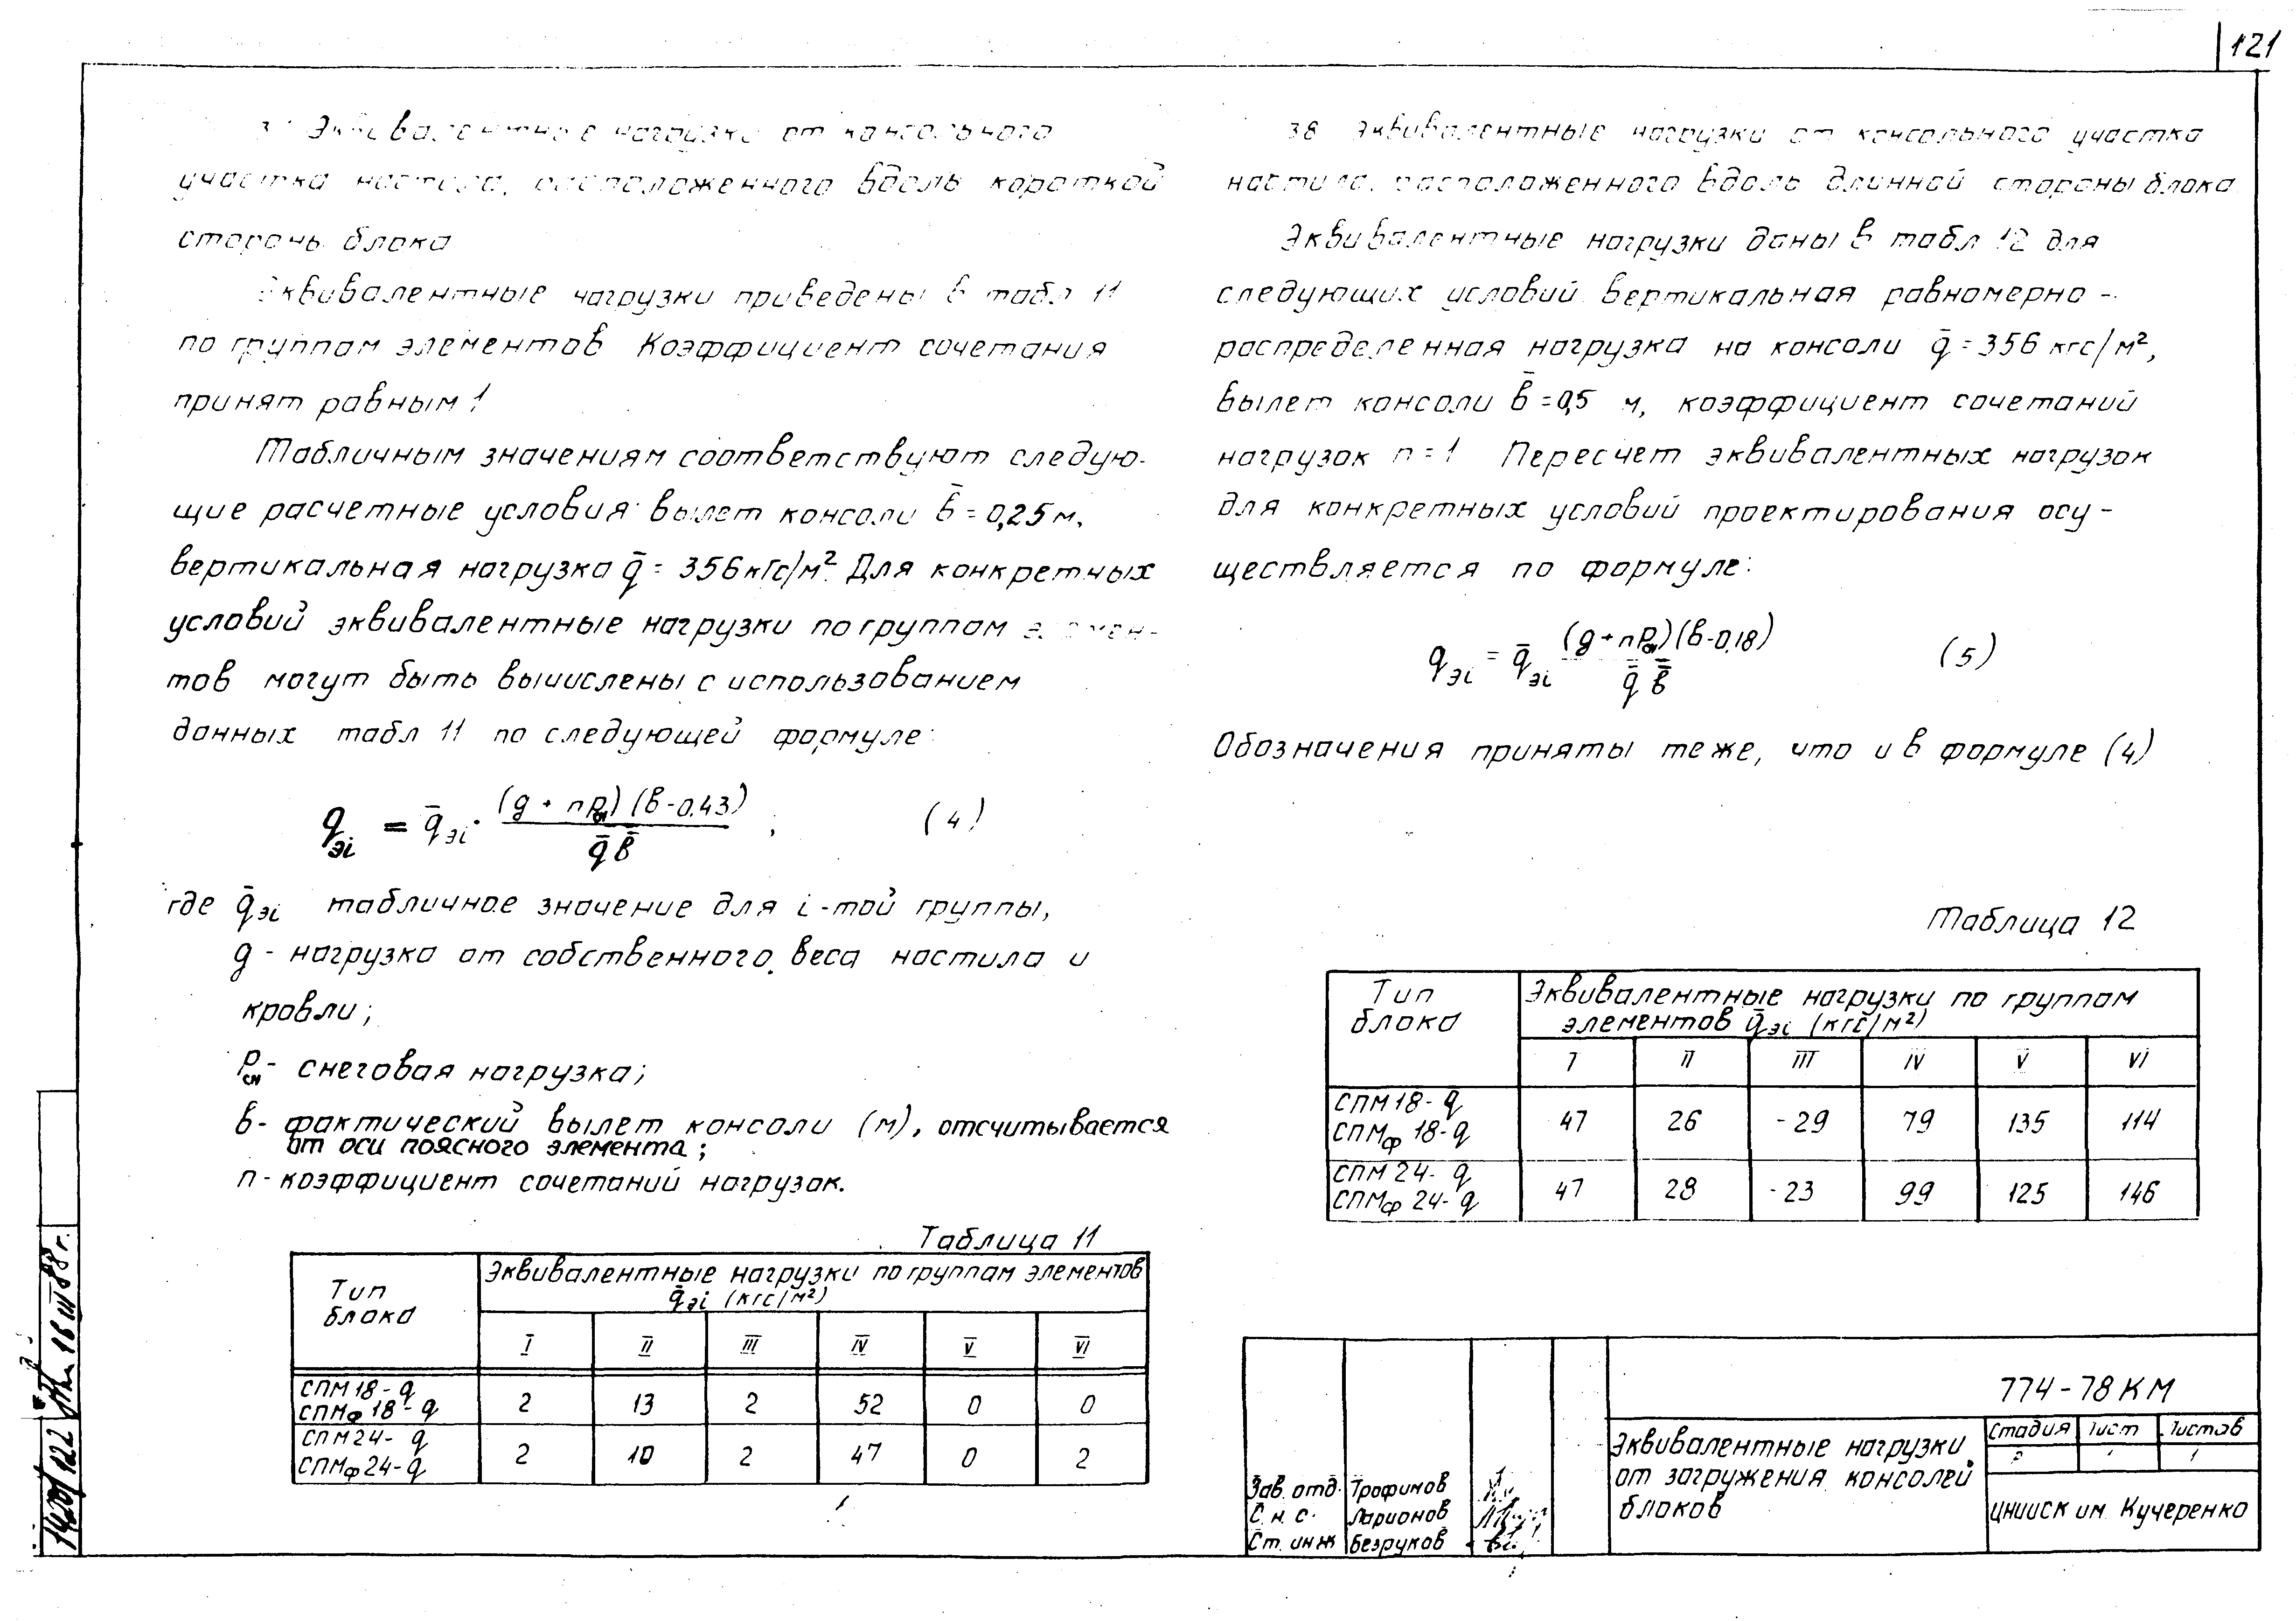 121
Эквивалентные нагрузки от консольного
участка настила, расположенного вдоль короткой
стороны блока
Эквивалентные нагрузки приведены в табл 11
по группам элементов Коэффициент сочетания
принят равным 1
Табличным значениям соответствуют следую-
щие расчетные условия: вылет консоли b̄ = 0,25 м,
вертикальная нагрузка q̄ = 356 кгс/м². Для конкретных
условий эквивалентные нагрузки по группам элемен-
тов могут быть вычислены с использованием
данных табл 11 по следующей формуле:
qэi = q̄эi · (g + n Pсн) (в - 0.43) / q̄ b̄ ; (4)
где q̄эi табличное значение для i-той группы,
g - нагрузка от собственного веса настила и
кровли;
Pсн - снеговая нагрузка;
в - фактический вылет консоли (м), отсчитывается
от оси поясного элемента;
n - коэффициент сочетаний нагрузок.
Таблица 11
Тип блока | Эквивалентные нагрузки по группам элементов q̄эi (кгс/м²)
I | II | III | IV | V | VI
СПМ 18-q СПМф 18-q | 2 | 13 | 2 | 52 | 0 | 0
СПМ 24-q СПМф 24-q | 2 | 10 | 2 | 47 | 0 | 2
38 Эквивалентные нагрузки от консольного участка
настила, расположенного вдоль длинной стороны блока
Эквивалентные нагрузки даны в табл 12 для
следующих условий вертикальная равномерно-
распределенная нагрузка на консоли q̄ = 356 кгс/м²,
вылет консоли b̄ = 0,5 м, коэффициент сочетаний
нагрузок n = 1 Пересчет эквивалентных нагрузок
для конкретных условий проектирования осу-
ществляется по формуле:
qэi = q̄эi (g + n Pсн) (в - 0.18) / q̄ b̄ (5)
Обозначения приняты те же, что и в формуле (4)
Таблица 12
Тип блока | Эквивалентные нагрузки по группам элементов q̄эi (кгс/м²)
I | II | III | IV | V | VI
СПМ 18-q СПМф 18-q | 47 | 26 | -29 | 79 | 135 | 114
СПМ 24-q СПМф 24-q | 47 | 28 | -23 | 99 | 125 | 146
774-78 КМ
Эквивалентные нагрузки
от загружения консолей
блоков
Стадия Лист Листов
Р 1
ЦНИИСК им. Кучеренко
Зав. отд. Трофимов
С. н. с. Ларионов
Ст. инж Безруков
1420/122
16 III 88 г.